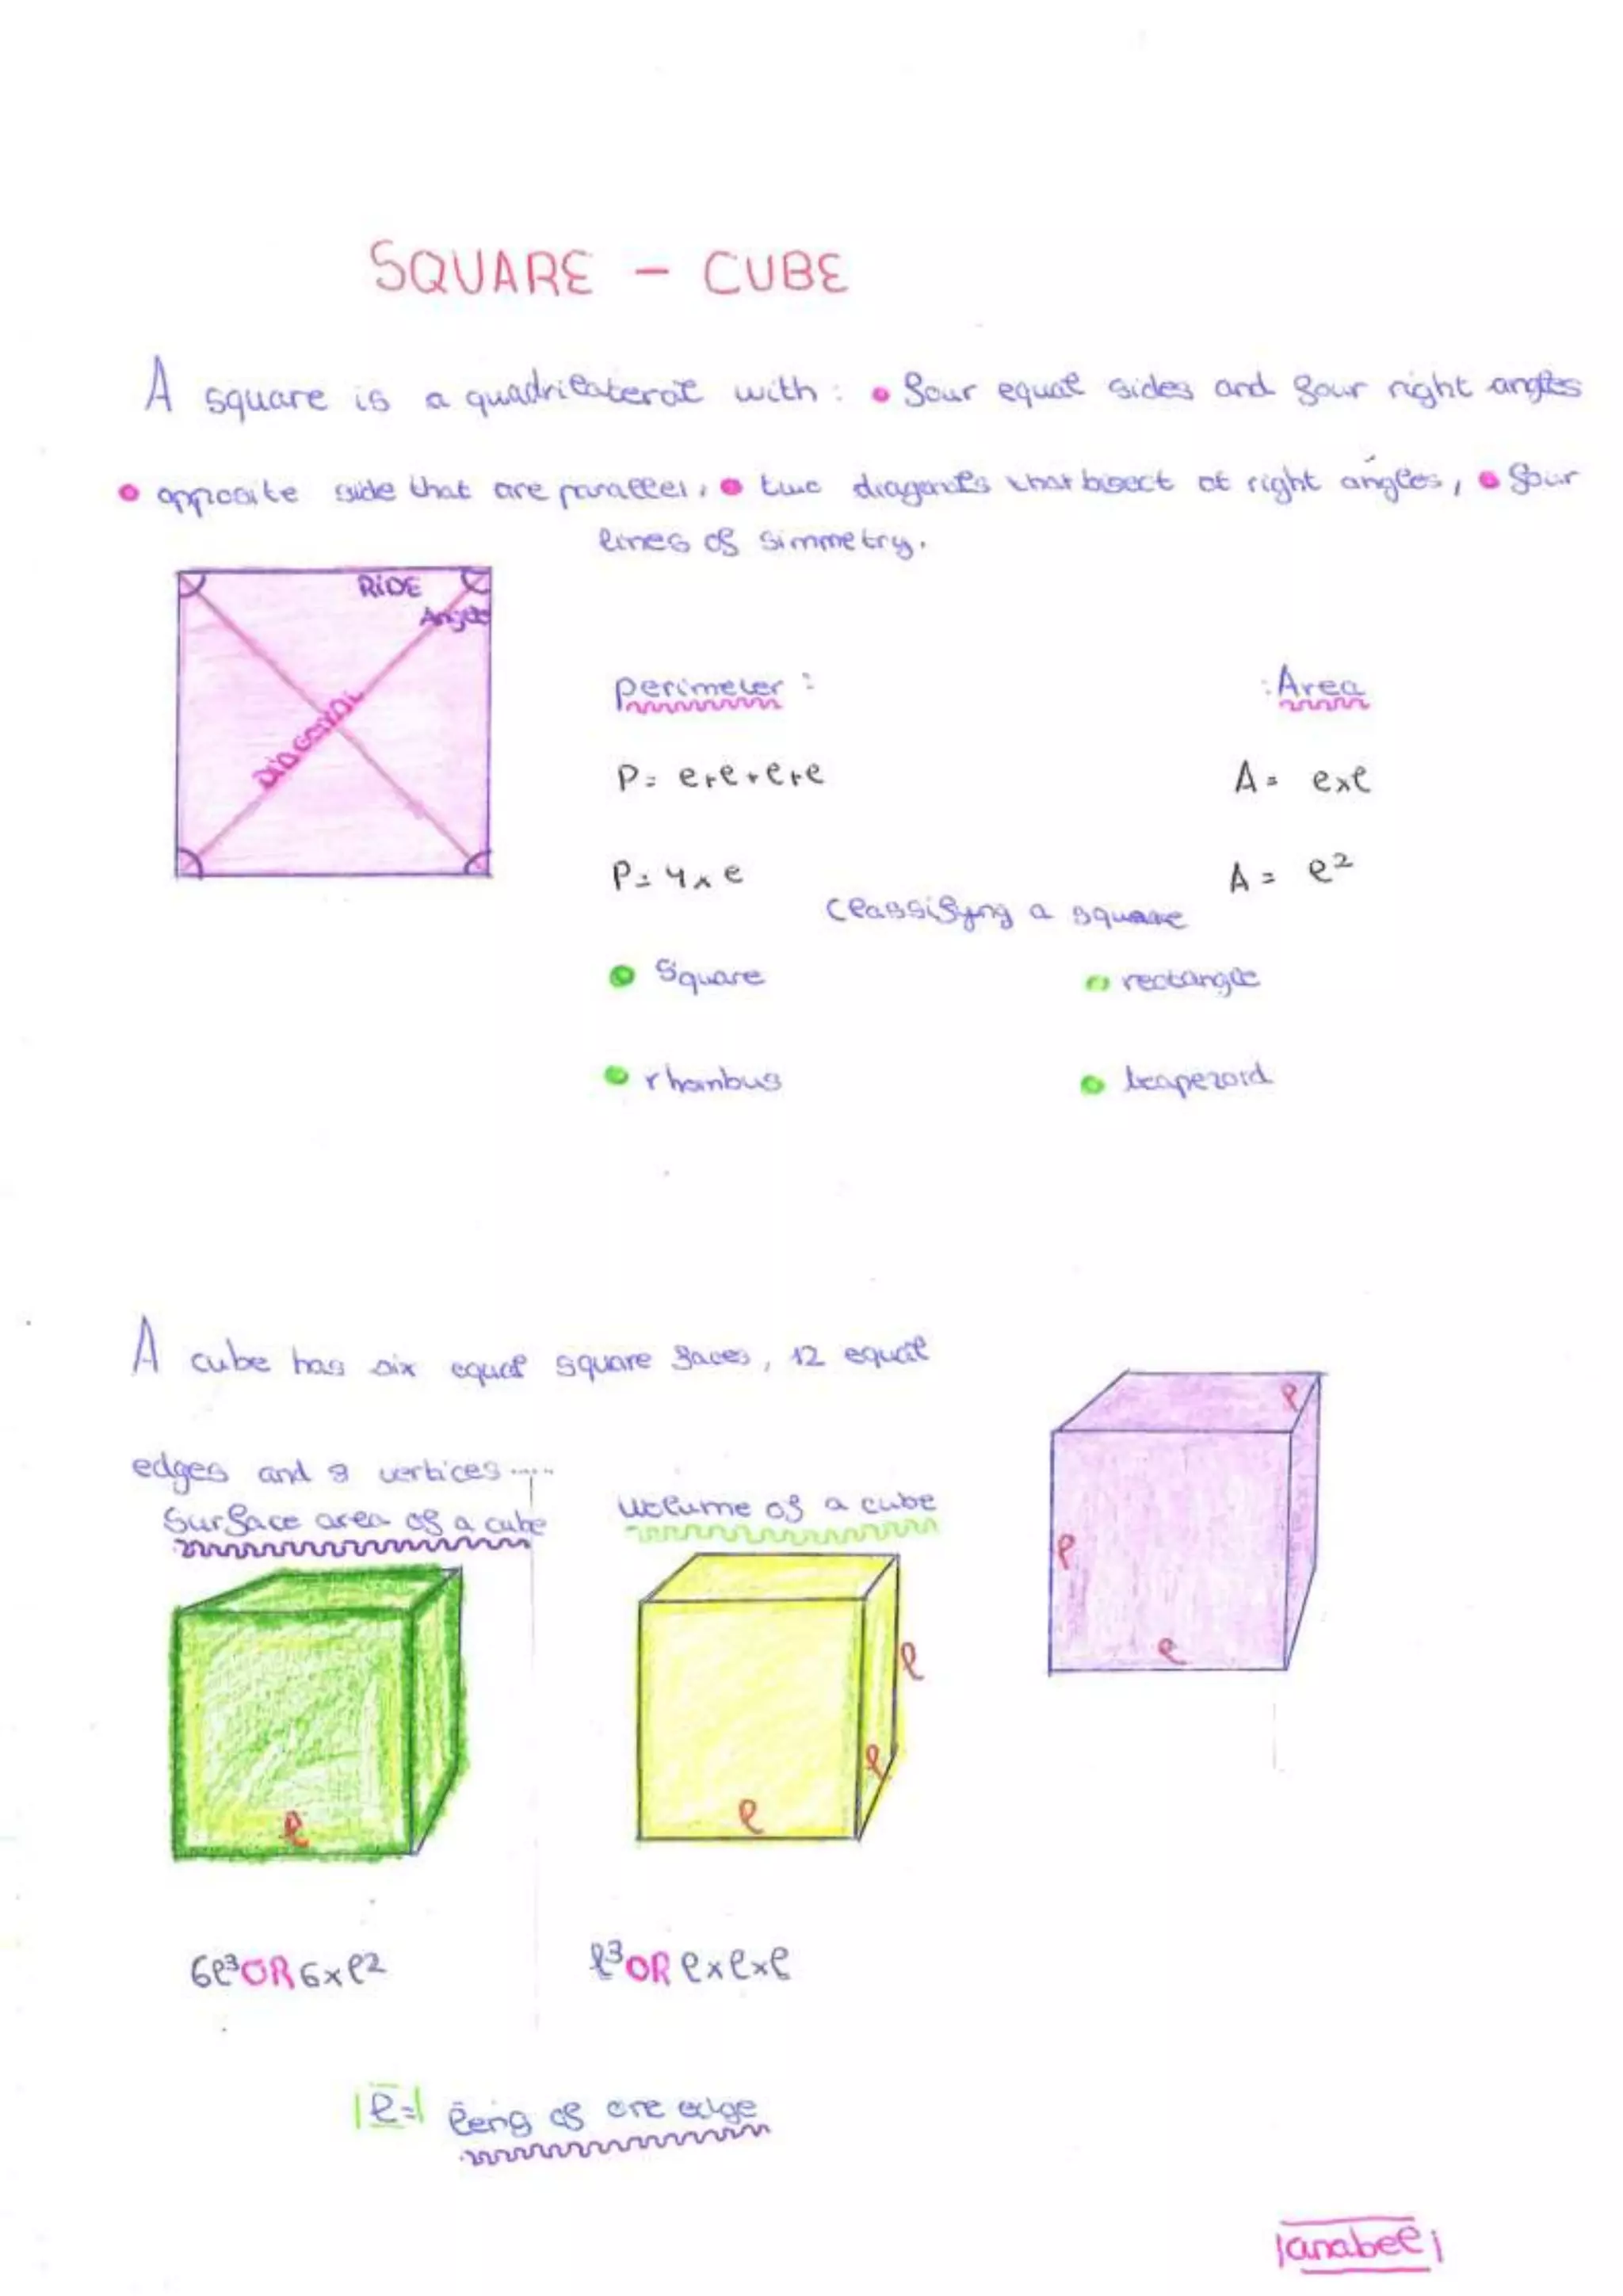 SQUARE - CUBE
A square is a quadrilateral with: • four equal sides and four right angles
• opposite side that are parallel, • two diagonals that bisect at right angles, • four
lines of simmetry.
RiDE
Angle
DIAGONAL
Perimeter :
P= l+l+l+l
P= 4 x l
: Area
A = l x l
A = l²
Classifyng a square
• Square
• rectangle
• rhombus
• trapezoid
A cube has six equal square faces, 12 equal
edges and 8 vertices .....
Surface area of a cube
volume of a cube
l
l
l
l
l
l
l
6l³ OR 6 x l²
l³ OR l x l x l
|l=| leng of one edge
|anabel|